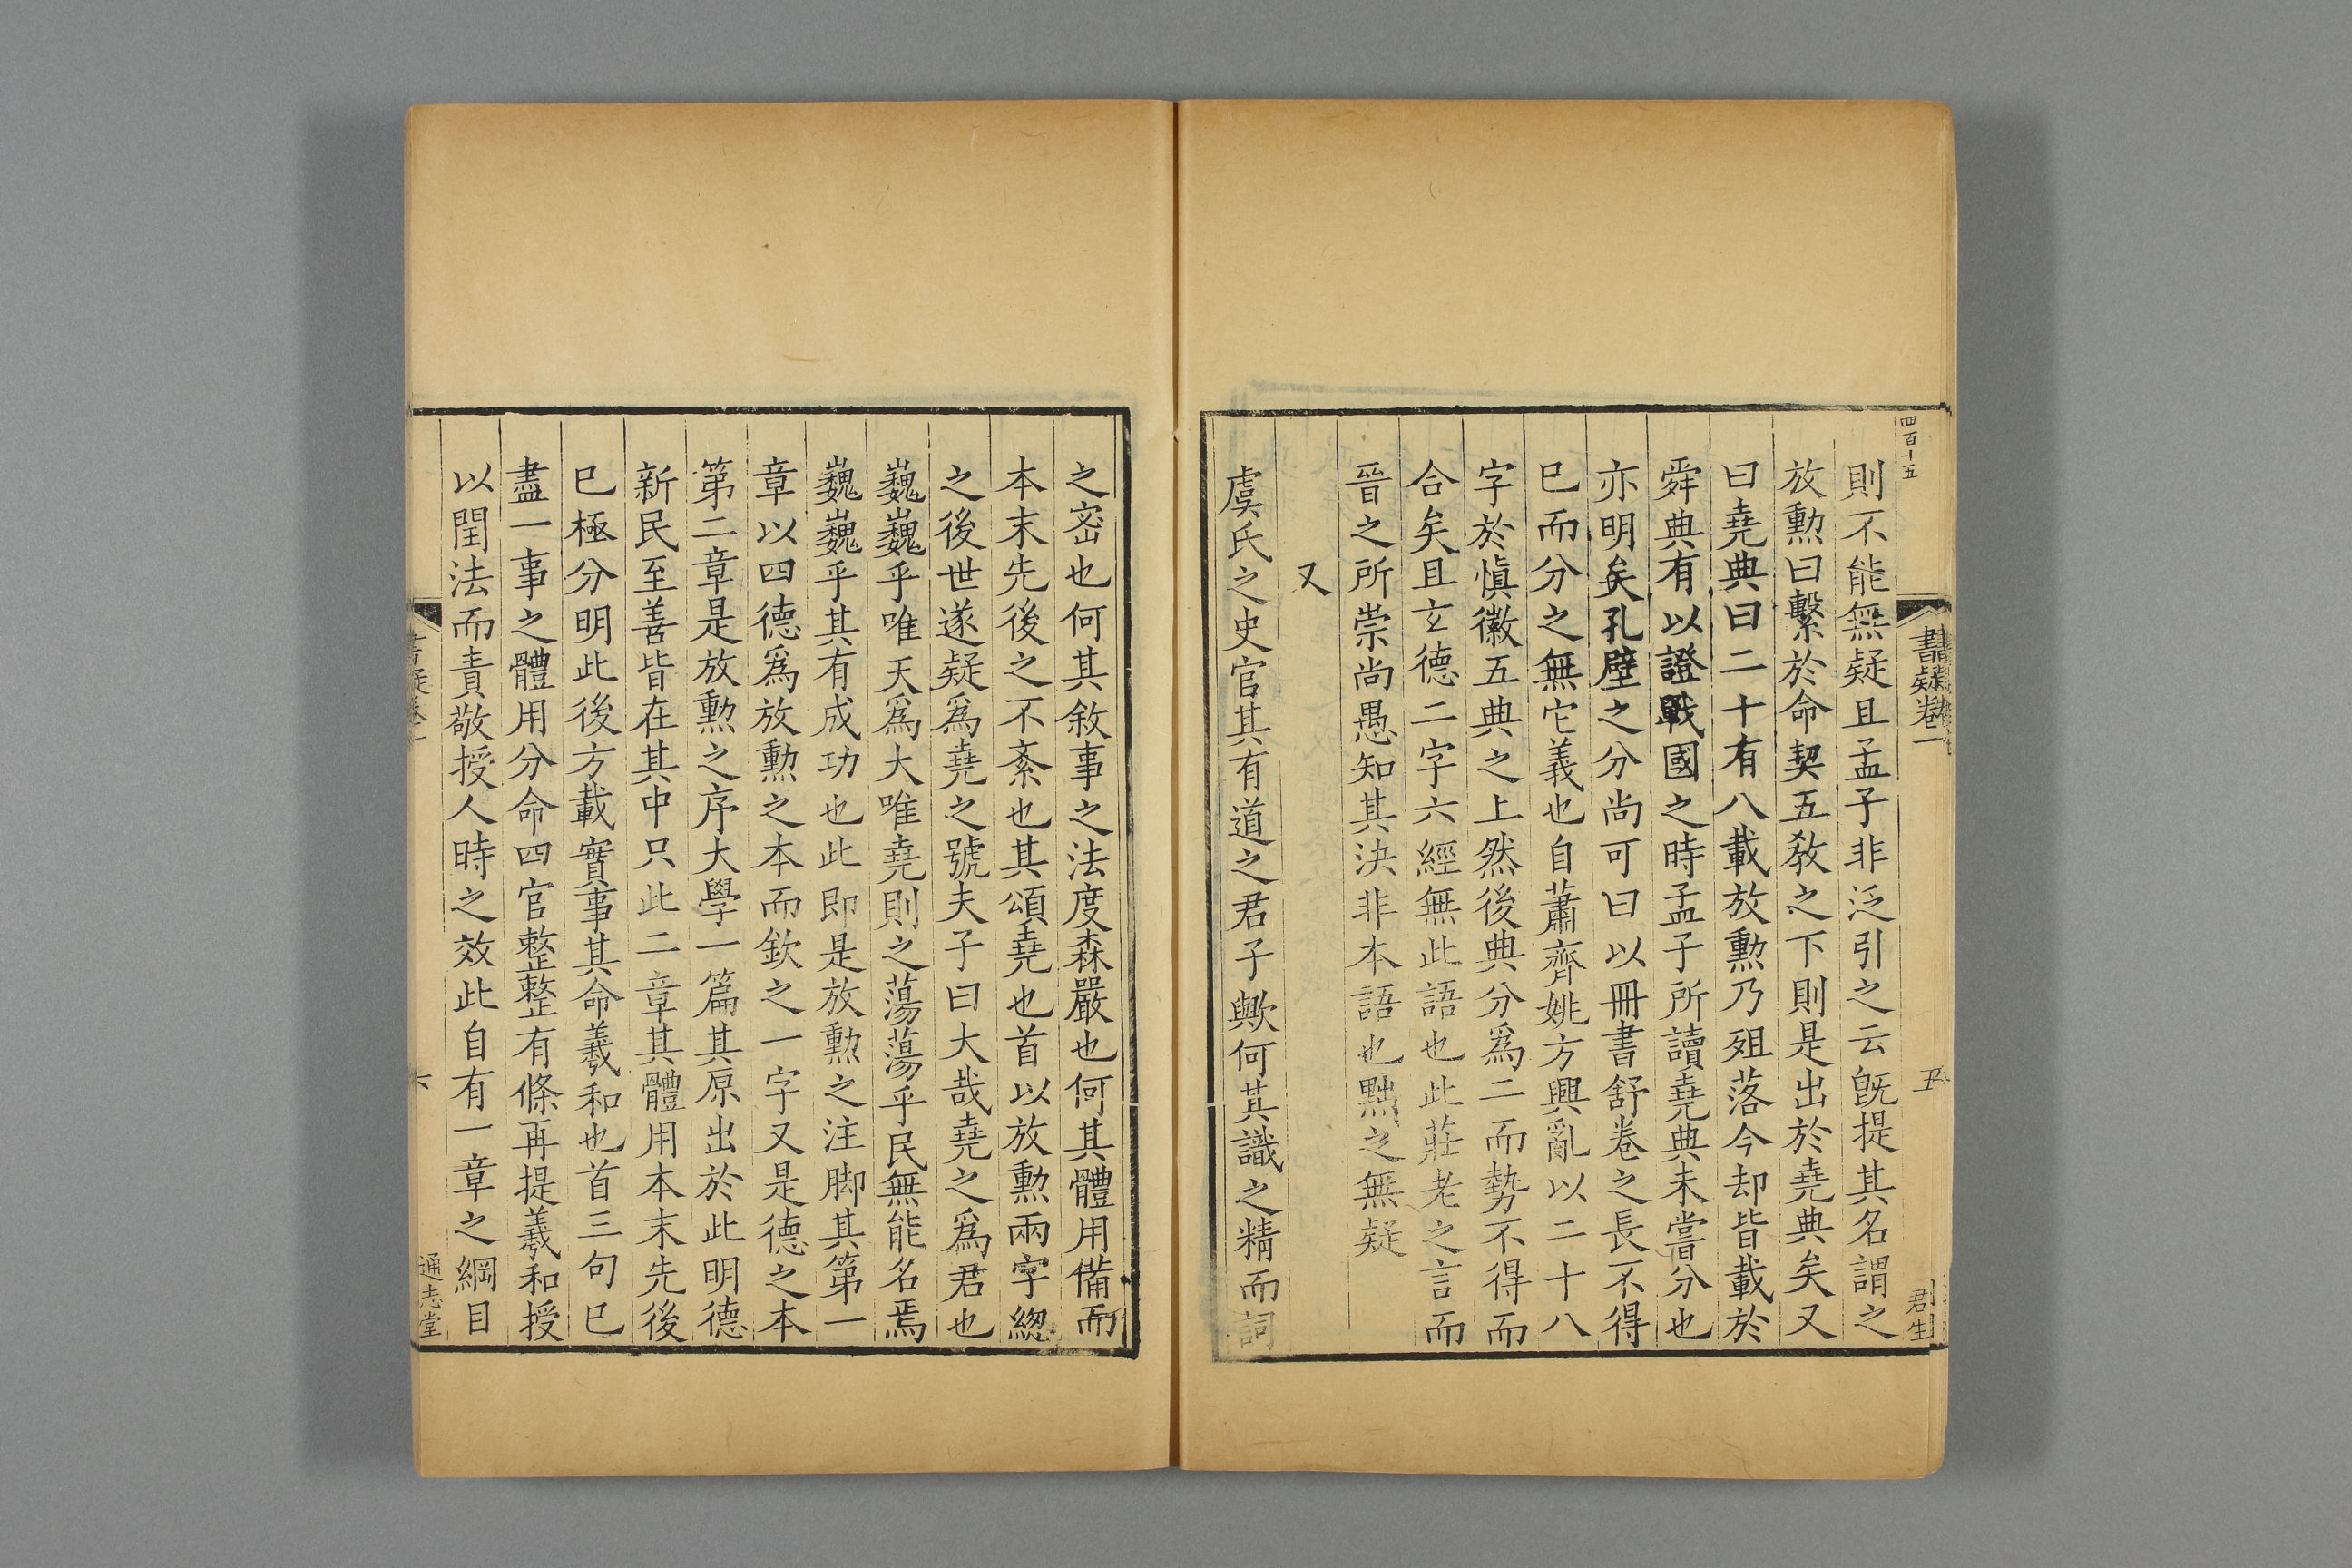 四百十五
書疑卷一
五
君生
則不能無疑且孟子非泛引之云旣提其名謂之
放勳曰繫於命契五敎之下則是出於堯典矣又
曰堯典曰二十有八載放勳乃殂落今却皆載於
舜典有以證戰國之時孟子所讀堯典未嘗分也
亦明矣孔壁之分尚可曰以冊書舒卷之長不得
已而分之無它義也自蕭齊姚方興亂以二十八
字於愼徽五典之上然後典分爲二而勢不得而
合矣且玄德二字六經無此語也此莊老之言而
晉之所崇尚愚知其決非本語也黜之無疑
又
虞氏之史官其有道之君子歟何其識之精而詞
之密也何其敘事之法度森嚴也何其體用備而
本末先後之不紊也其頌堯也首以放勳兩字緫
之後世遂疑爲堯之號夫子曰大哉堯之爲君也
巍巍乎唯天爲大唯堯則之蕩蕩乎民無能名焉
巍巍乎其有成功也此即是放勳之注脚其第一
章以四德爲放勳之本而欽之一字又是德之本
第二章是放勳之序大學一篇其原出於此明德
新民至善皆在其中只此二章其體用本末先後
已極分明此後方載實事其命羲和也首三句已
盡一事之體用分命四官整整有條再提羲和授
以閏法而責敬授人時之效此自有一章之綱目
書疑卷一
六
通志堂